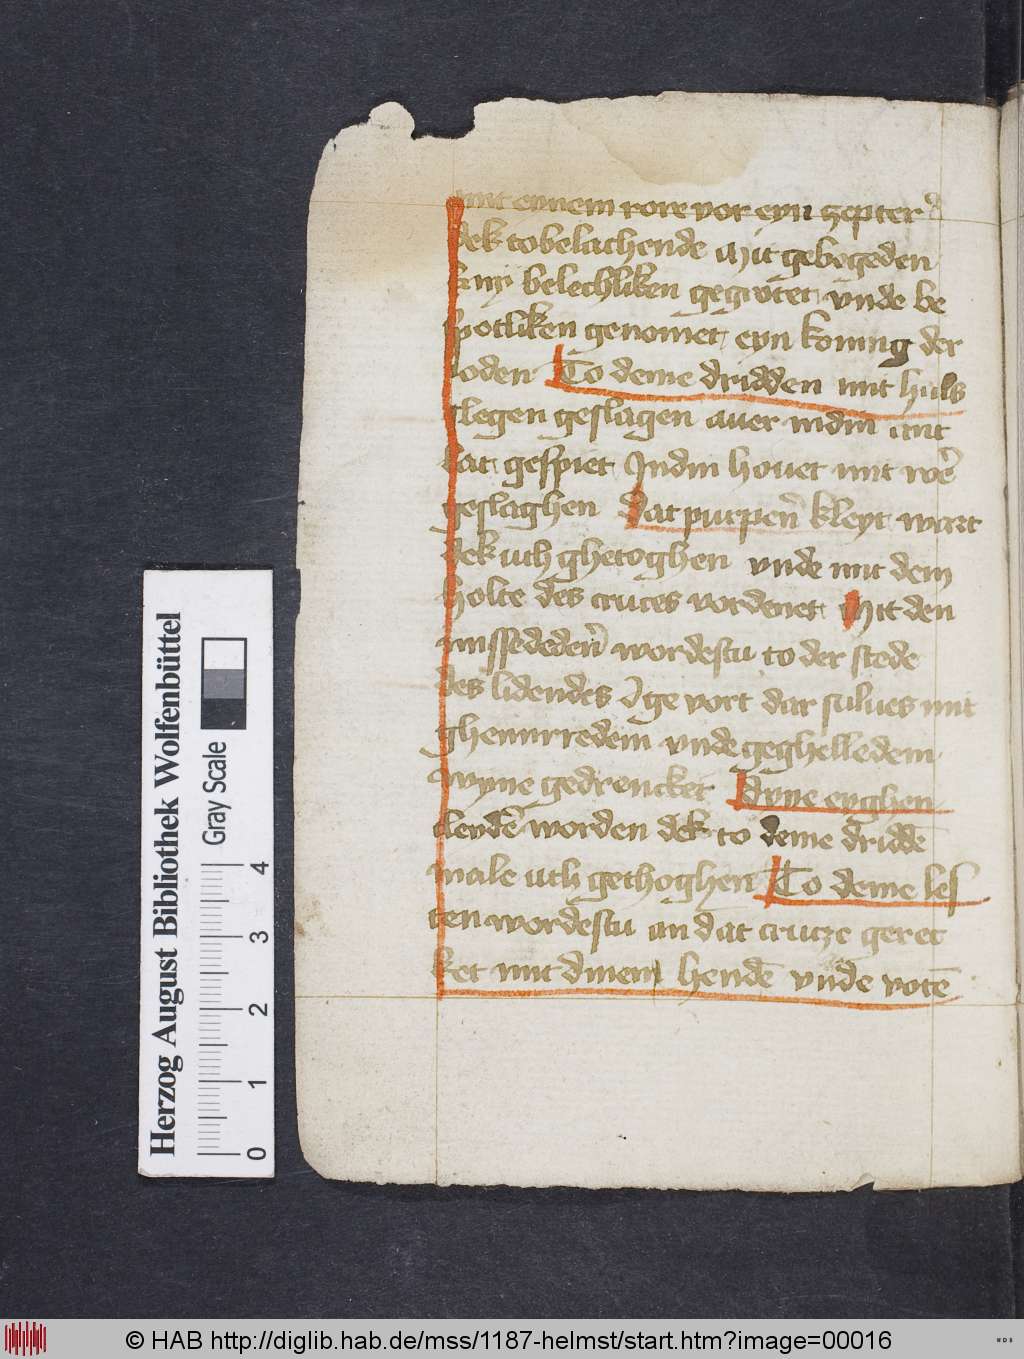 mit eynem rore vor eyn zepter
dek to belachende mit gebogeden
kny belechliken gegrotet vnde be
spotliken genomet eyn koning der
ioden To deme dridden mit hals
slegen geslagen auer in din ant
lat gespiet In din houet mit
geslaghen dat purpern̄ kleyt wart
dek uth ghetoghen vnde mit dem
holte des cruces vordenet mit den
missededern̄ wordestu to der stede
des lidendes vort dar sulues mit
ghemirredem vnde geghelledem
wyne gedrencket Dyne eyghen
cleydē worden dek to deme driddē
male uth gethoghen To deme les
ten wordestu an dat cruce gerec
ket mit dinen hendē vnde votē
Herzog August Bibliothek Wolfenbüttel
Gray Scale
0 1 2 3 4
© HAB http://diglib.hab.de/mss/1187-helmst/start.htm?image=00016